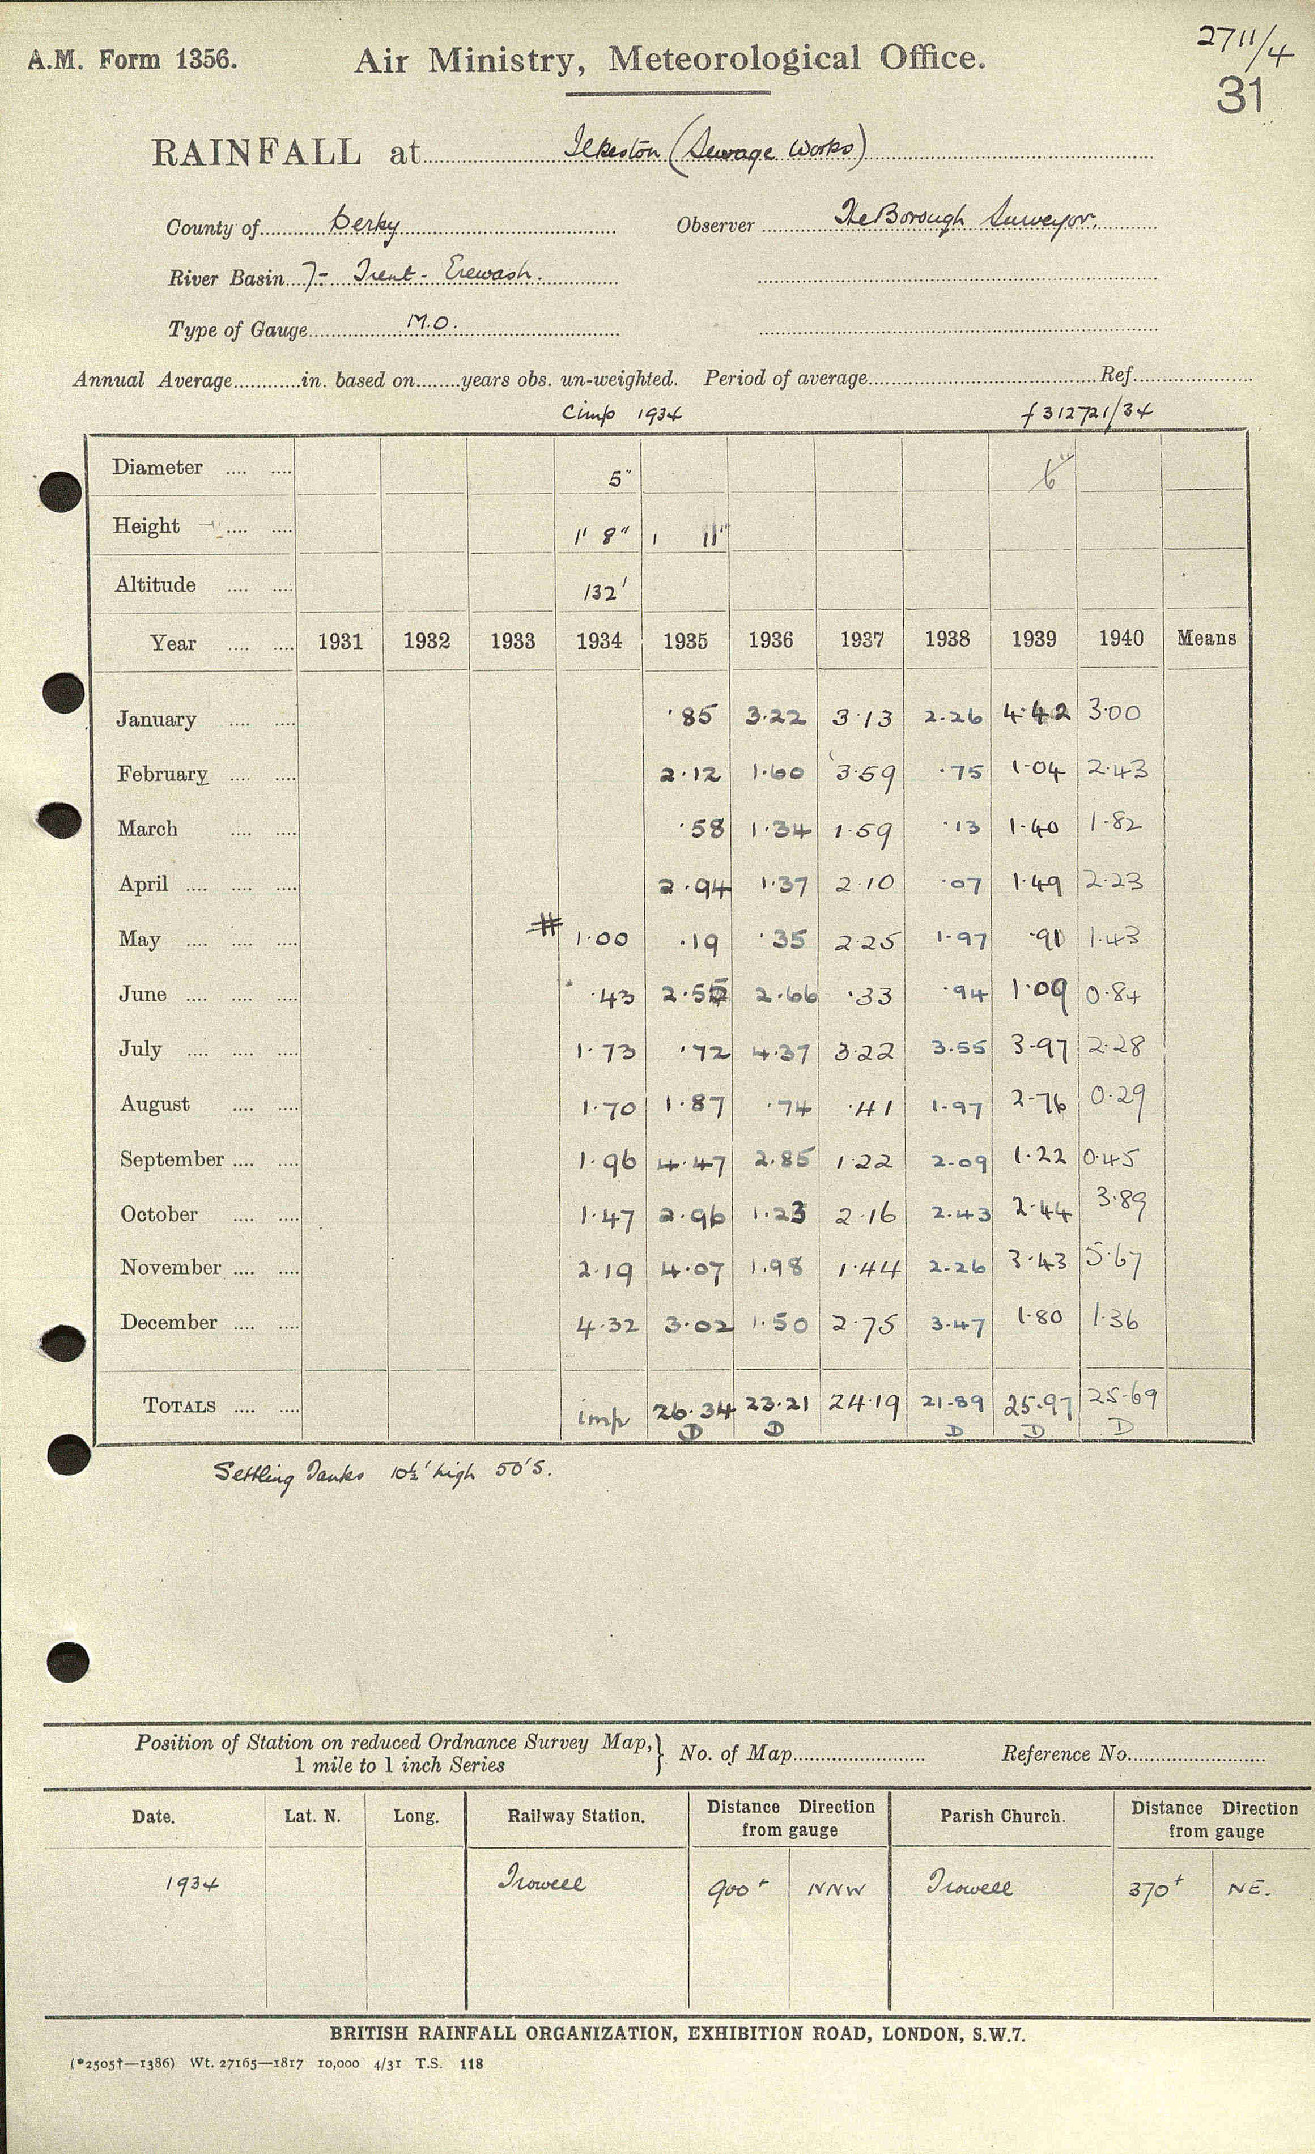 A.M. Form 1356. Air Ministry, Meteorological Office. 2711/4
31
RAINFALL at Ilkeston (Sewage Works)
County of Derby Observer The Borough Surveyor.
River Basin 7- Trent - Erewash.
Type of Gauge M.O.
Annual Average in. based on years obs. un-weighted. Period of average Ref.
1934 f312721/34
Diameter 5" 6"
Height 1' 8" 1 11"
Altitude 132'
Year 1931 1932 1933 1934 1935 1936 1937 1938 1939 1940 Means
January ·85 3·22 3·13 2·26 4·42 3·00
February 2·12 1·60 3·59 ·75 1·04 2·43
March ·58 1·34 1·59 ·13 1·40 1·82
April 2·94 1·37 2·10 ·07 1·49 2·23
May # 1·00 ·19 ·35 2·25 1·97 ·91 1·43
June ·43 2·55 2·66 ·33 ·94 1·09 0·84
July 1·73 ·72 4·37 3·22 3·55 3·97 2·28
August 1·70 1·87 ·74 ·41 1·97 2·76 0·29
September 1·96 4·47 2·85 1·22 2·09 1·22 0·45
October 1·47 2·96 1·23 2·16 2·43 2·44 3·89
November 2·19 4·07 1·98 1·44 2·26 3·43 5·67
December 4·32 3·02 1·50 2·75 3·47 1·80 1·36
TOTALS imp 26·34 23·21 24·19 21·89 25·97 25·69
D D D D D
Settling Tanks 10½' high 50' S.
Position of Station on reduced Ordnance Survey Map, } No. of Map Reference No.
1 mile to 1 inch Series
Date. Lat. N. Long. Railway Station. Distance Direction from gauge Parish Church. Distance Direction from gauge
1934 Trowell 900+ NNW Trowell 370+ NE.
BRITISH RAINFALL ORGANIZATION, EXHIBITION ROAD, LONDON, S.W.7.
(*2505†—1386) Wt. 27165—1817 10,000 4/31 T.S. 118